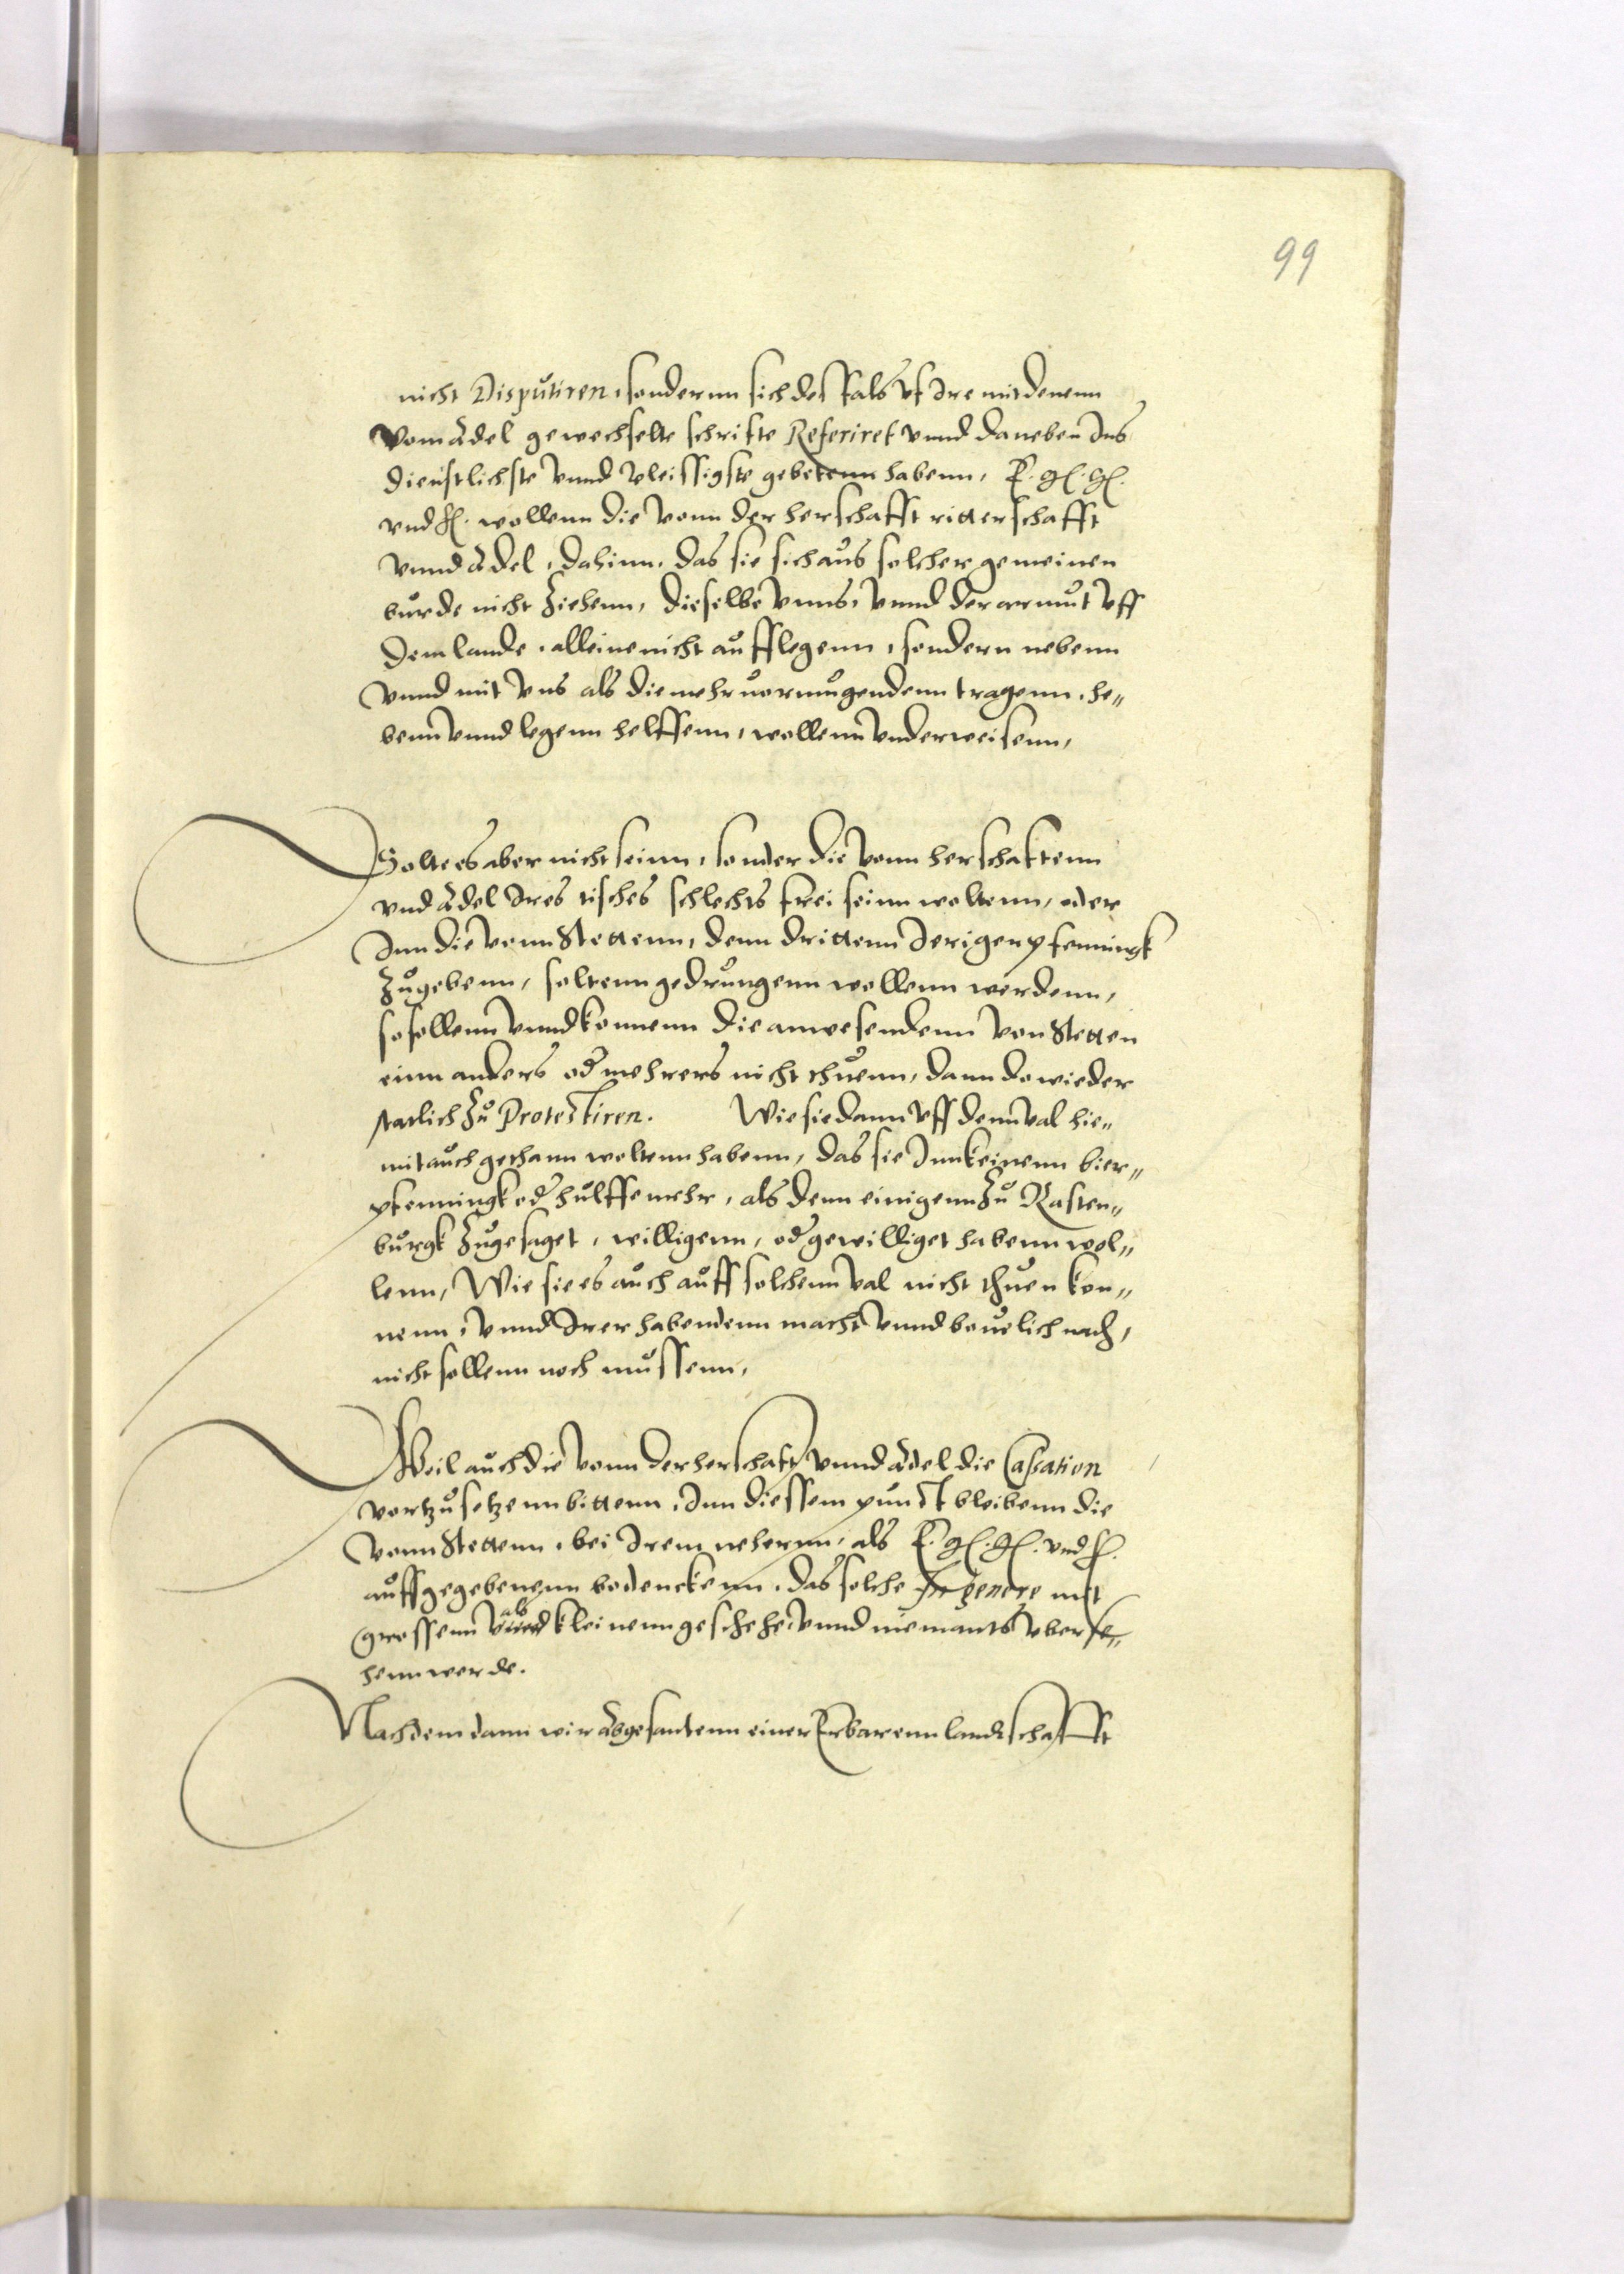 99
nicht Disputiren, sondernn sich desfals vf Ire mit denenn
vom Adel gewechselte schrifte Referiret vnnd daneben Ins
dienstlichste vnnd vleissigste gebetenn habenn, E. G. H.
vnd F. wollenn die vonn der herschafft ritterschafft
vnnd Adel, dahinn, das sie sich aus solcher gemeinen
burde nicht ziehenn, dieselbe vnns, vnnd der armut vff
dem lande, alleine nicht aufflegenn, sondern nebenn
vnnd mit vns als die mehr vormugendenn tragenn, he„
benn vnnd legenn helffenn, wollenn vnderweisenn,
Solte es aber nicht seinn, sonder die vonn herschaftenn
vnd Adel Ires tisches schlechts frei seinn woltenn, oder
Inn die vonn Stettenn, denn drittenn Ierigen pfenningk
zugebenn, soltenn gedrungenn wollenn werdenn,
so sollenn vnnd konnenn die anwesendenn von Stetten
einn anders od mehrers nicht thuenn, dann dowieder
statlich zu Protestiren. Wie sie dann vff denn val hie„
mit auch gethann woltenn habenn, das sie Inn keinenn bier„
pfenningk od hulffe mehr, als denn einigenn zu Rasten„
burgk zugesaget, willigenn, od gewilliget habenn wol„
lenn, Wie sie es auch auff solchenn val nicht thuen kon„
nenn, vnnd Irer habendenn macht vnnd beuelich nach,
nicht sollenn noch mussenn,
Weil auch die vonn der herschaft vnnd Adel die Cassation
vortzusetzenn bittenn, Inn diessem punct bleibenn die
vonn Stettenn, bei Irem nehernn, als E. G. H. vnd F.
auffgegebenenn bedenckenn, das solche In genere mit
grossenn als kleinenn geschehe, vnnd niemants vberse„
henn werde.
Nachdem dann wir Abgesantenn einer Erbarenn landtschafft